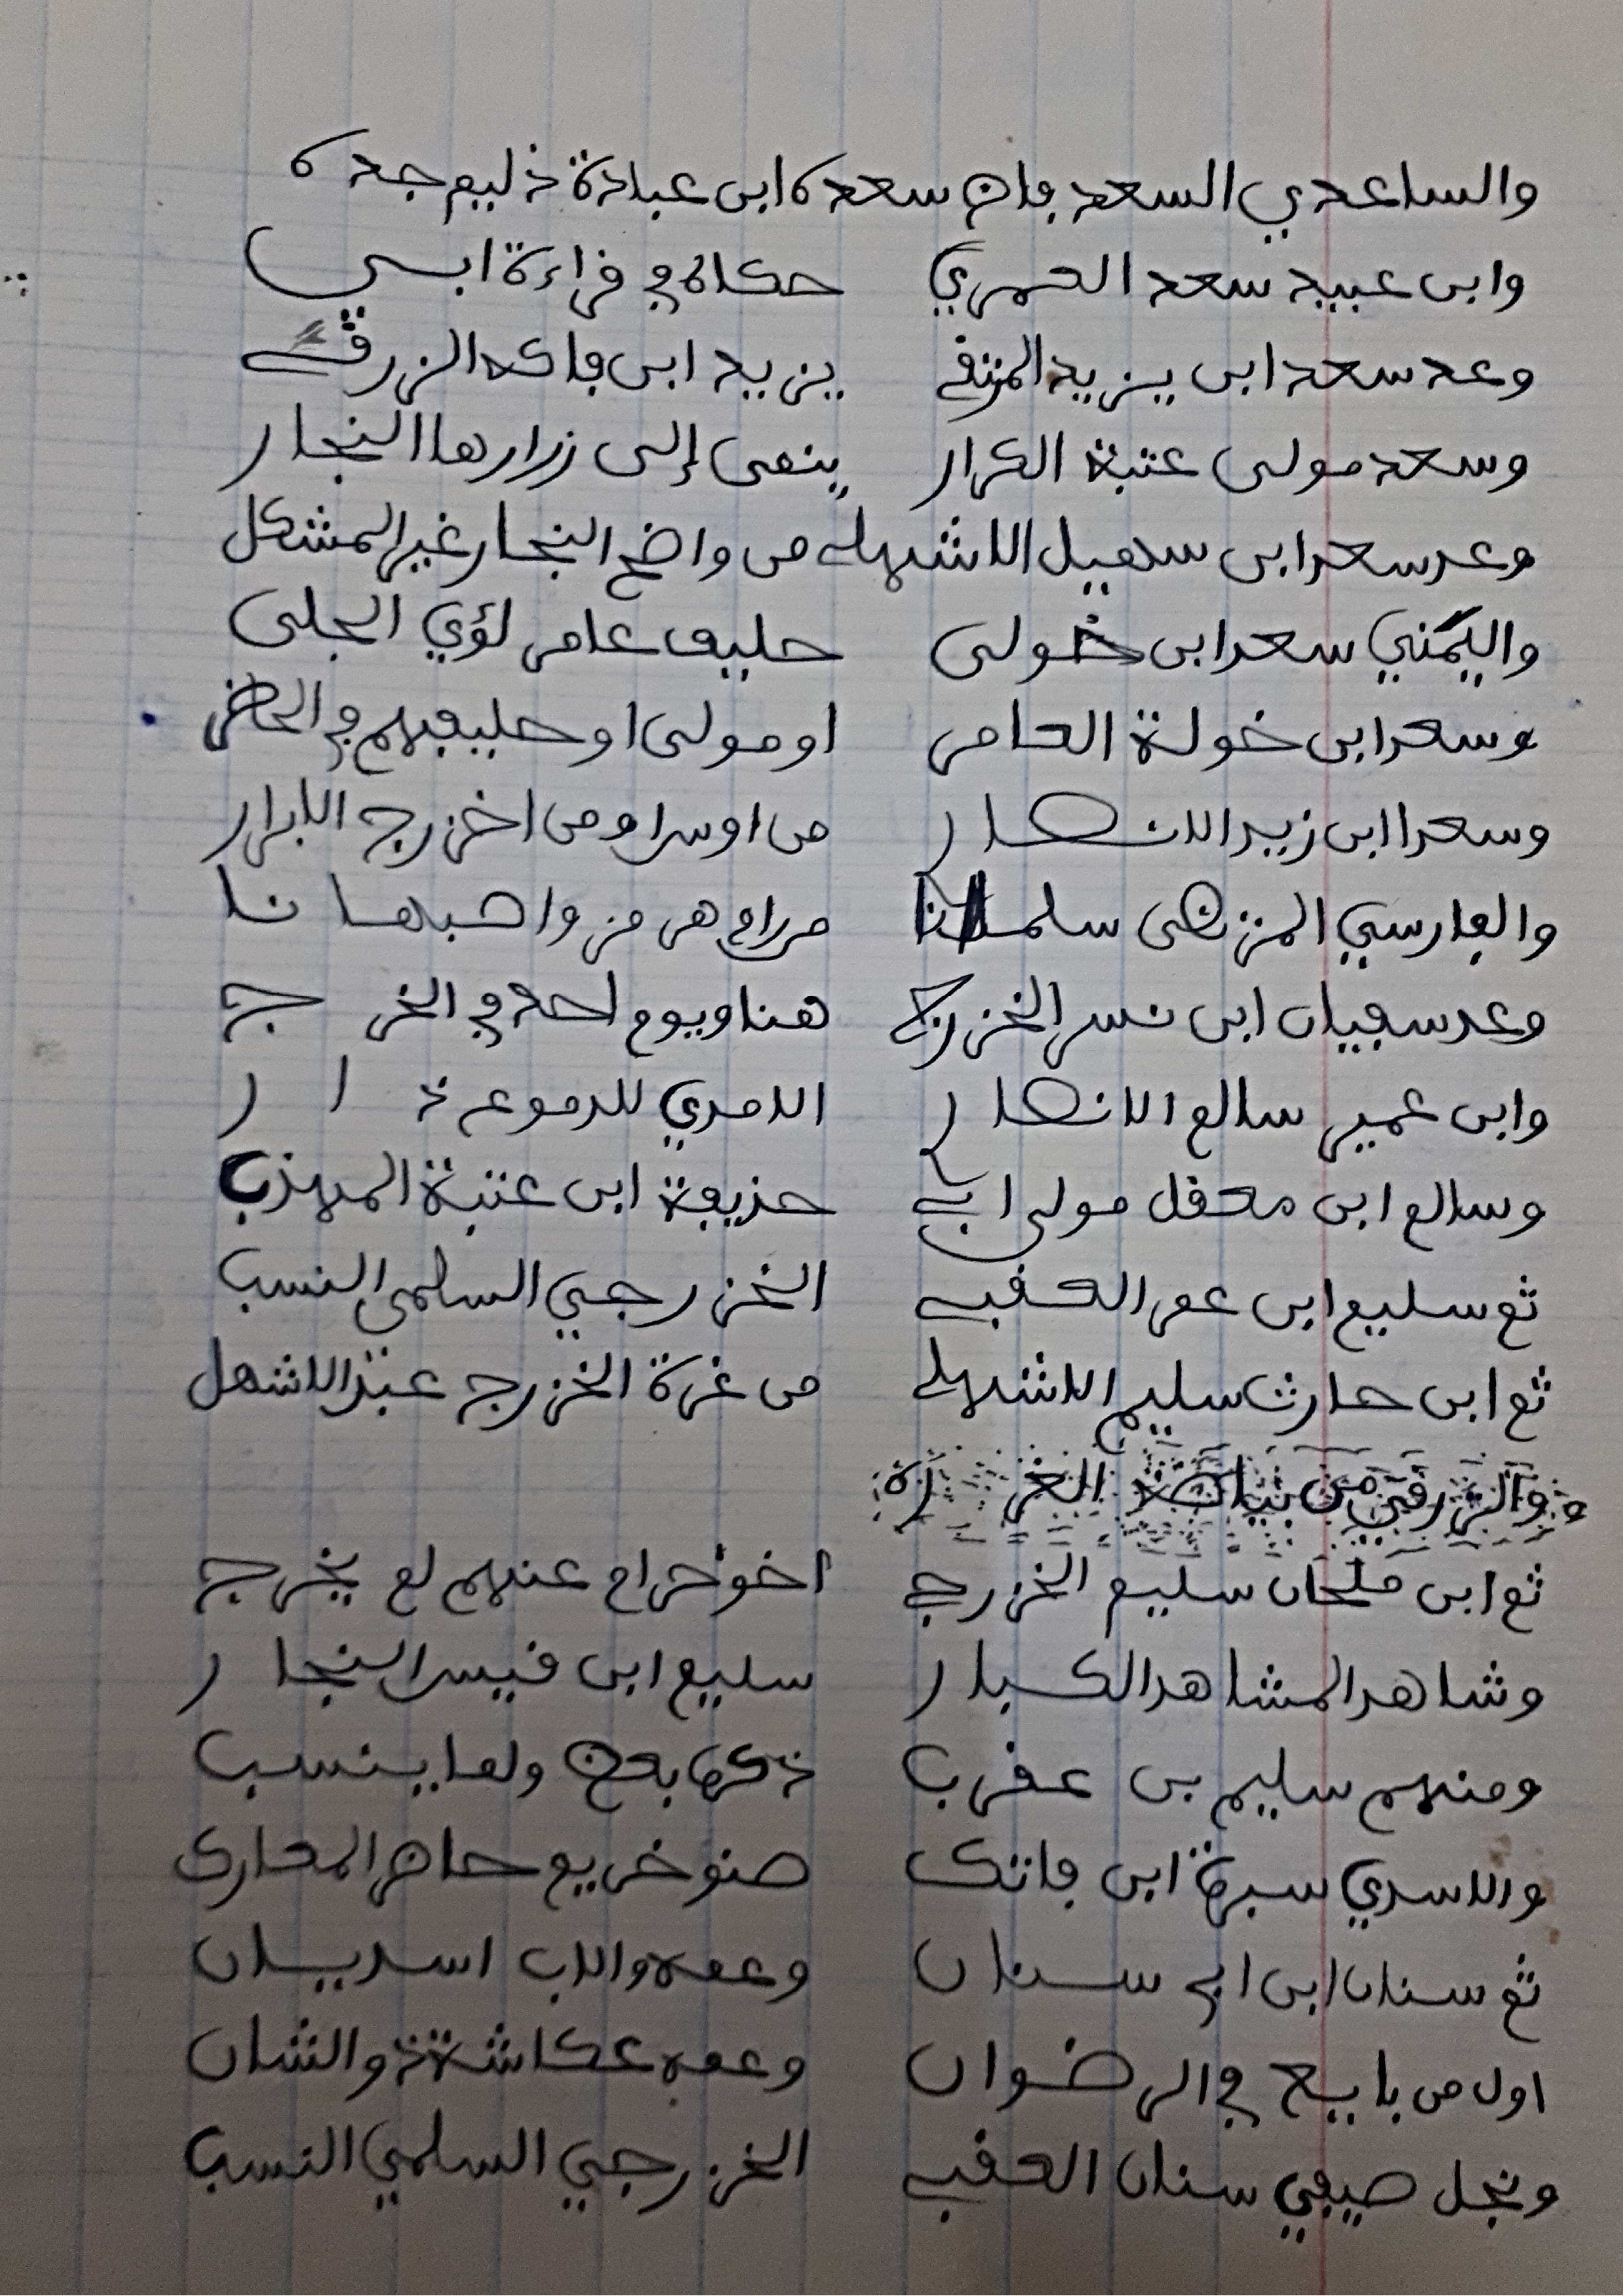 والساعدي السعد فان سعده ابن عبادة ذليم جده
وابن عبيد سعد العمري حكاه في قراءة ابي
وعد سعد ابن يزيد المزنقي يزيد ابن فاكه الزرقي
وسعد مولى عتبة الكرار ينمى إلى زرارها النجار
وعد سعد ابن سهيل الاشهلي من واضح النجار غير المشكل
واليمني سعد ابن خولى حليف عامر لؤي الجلى
وسعد ابن خولة العامر او مولى او حليفهم في الحاضر
وسعد ابن زيد الانصار من اوس او من اخزرج الابرار
والفارسي المرتضى سلمانا مرام هرمز واصبهانا
وعد سفيان ابن نسر الخزرج هنا ويوم احد في الخرج
وابن عمير سالم الانصار الامدي للدموع ذ ا ر
وسالم ابن معقل مولى ابي حذيفة ابن عتبة المهذب
ثم سليم ابن عمر العقبي الخزرجي السلمي النسب
ثم ابن حارث سليم الاشهلي من غرة الخزرج عبد الاشهل
والزرقي من بياضة الغر
ثم ابن ملحان سليم الخزرجي أخو حرام عنهم لم يخرج
وشاهد المشاهد الكبار سليم ابن قيس النجار
ومنهم سليم بن عقرب ذكره بعض ولما ينسب
والاسدي سبرة ابن فاتك صنو خريم حاضر المعارك
ثم سنان ابن ابي سنان وعمه والاب اسديان
اول من بايع في الرضوان وعمه عكاشة ذو الشان
ونجل صيفي سنان العقبي الخزرجي السلمي النسب